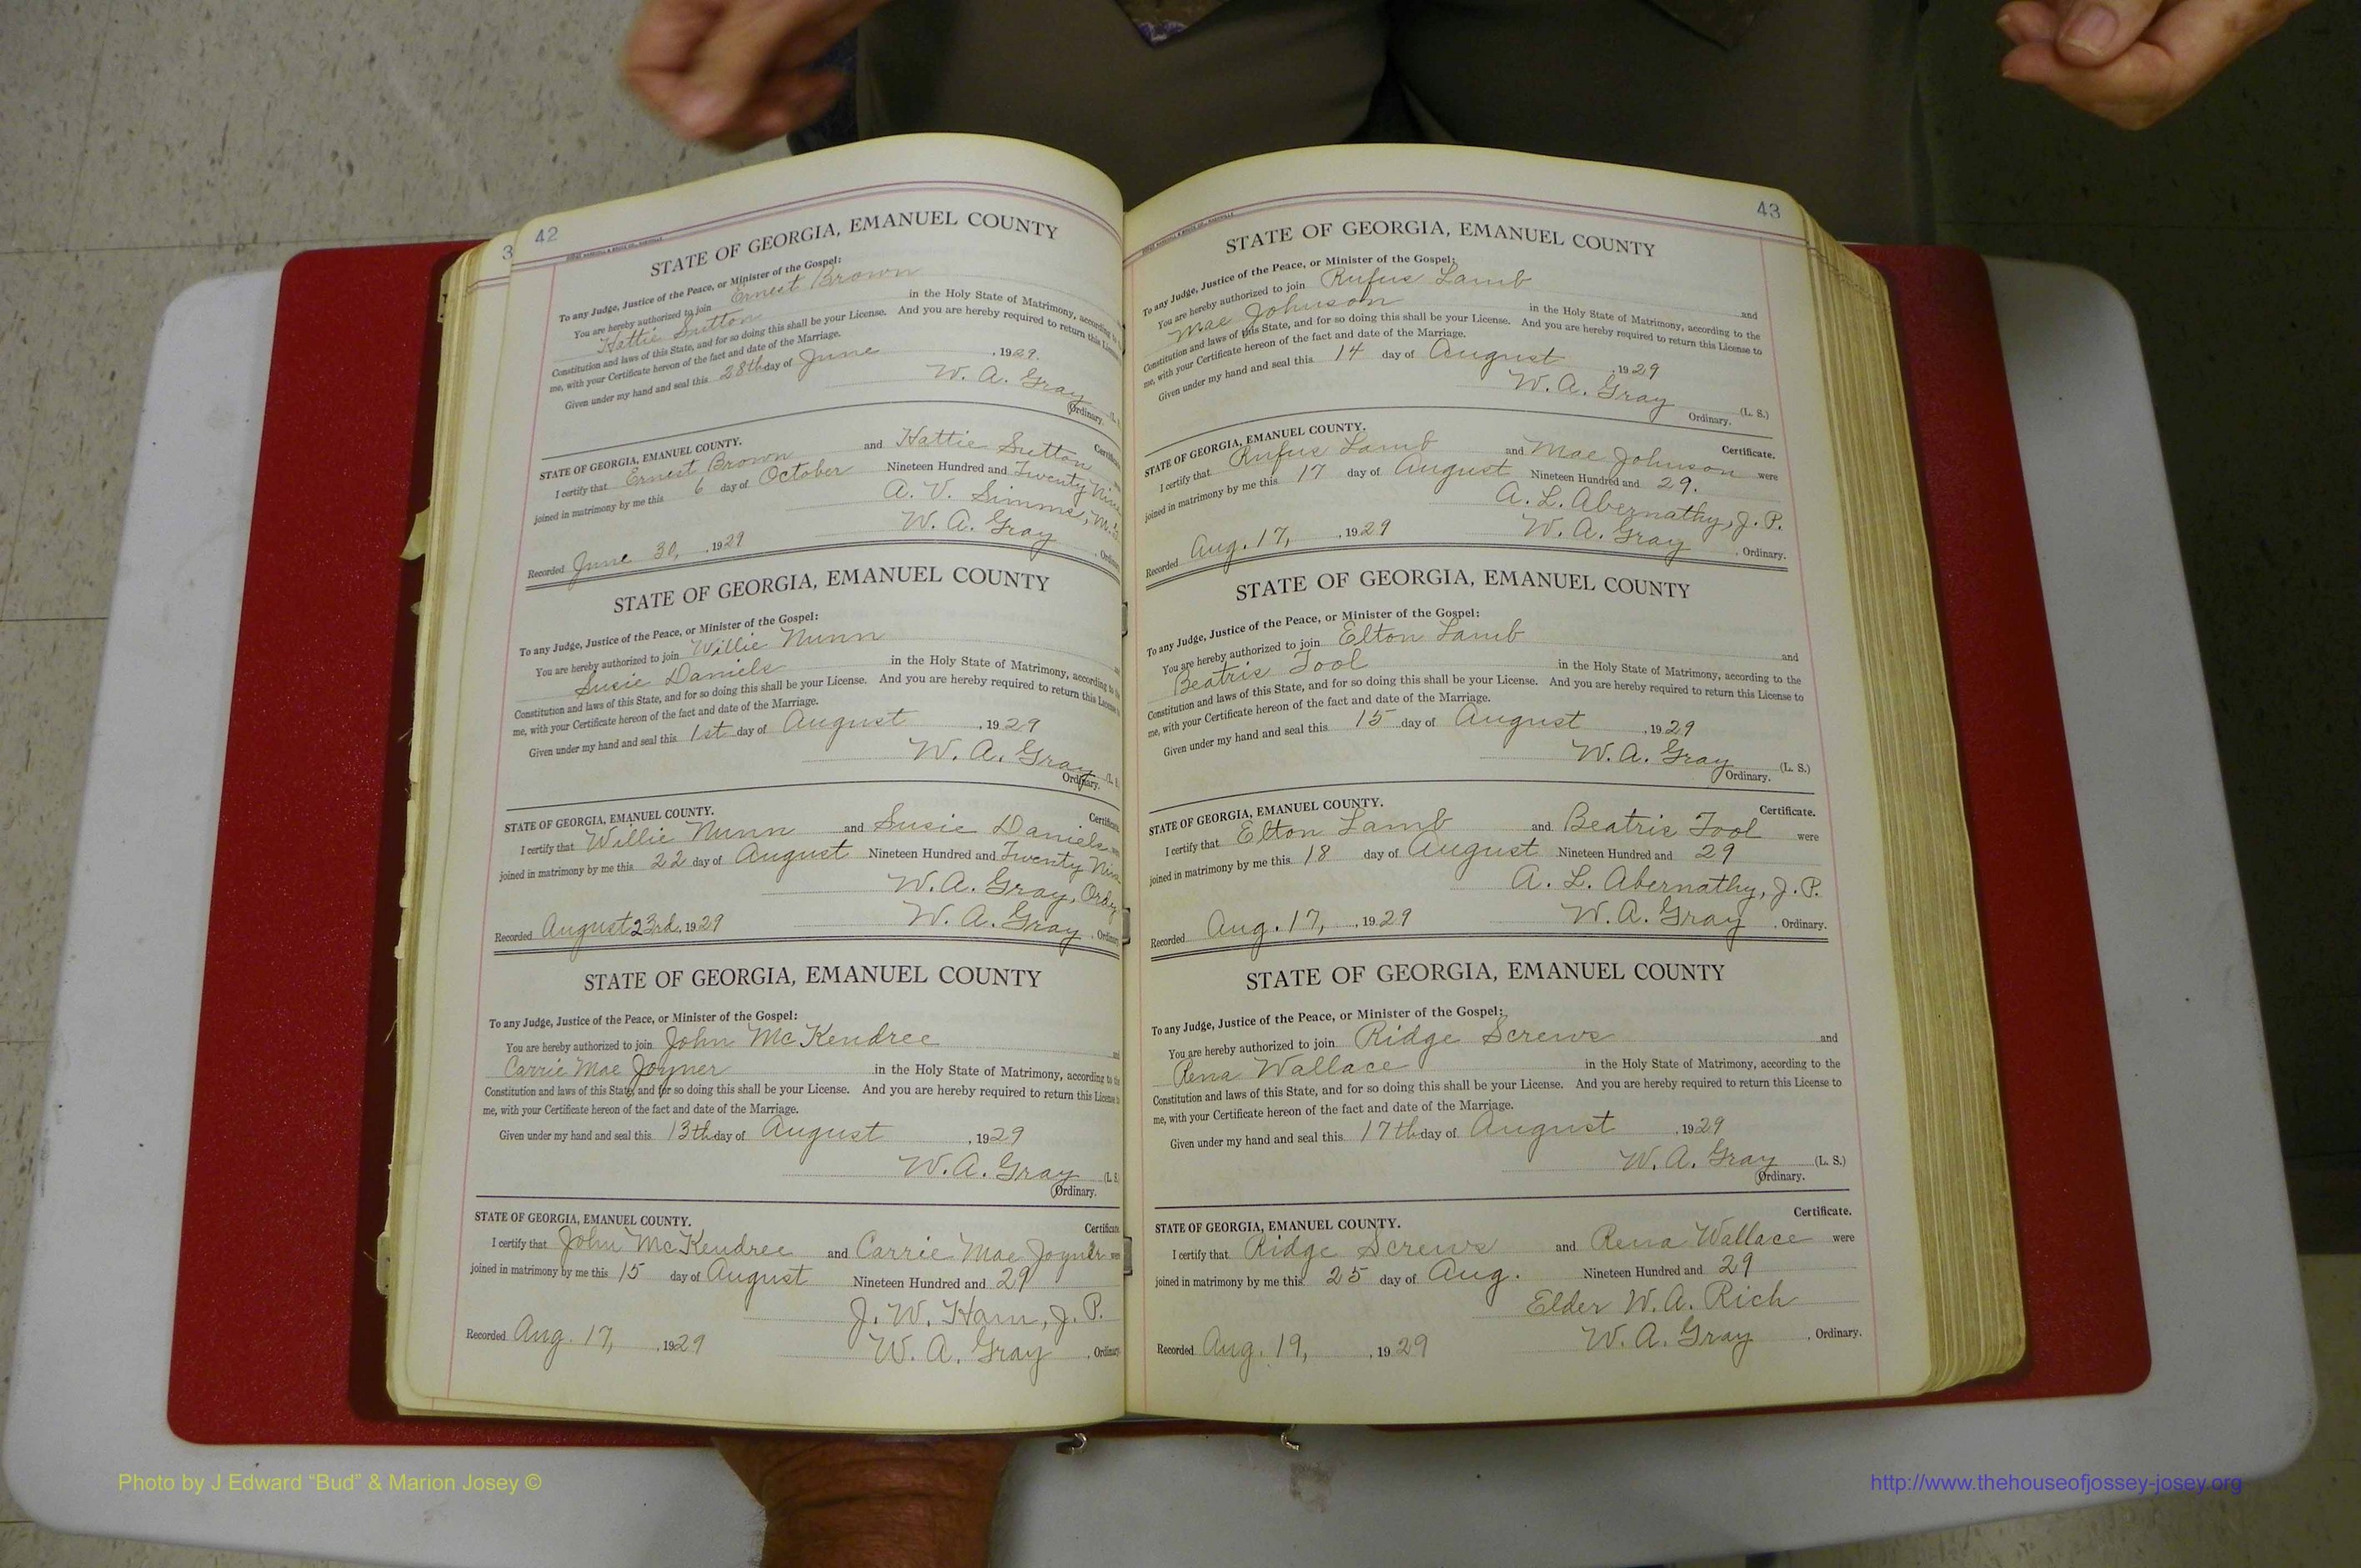 3
42
STATE OF GEORGIA, EMANUEL COUNTY
To any Judge, Justice of the Peace, or Minister of the Gospel:
You are hereby authorized to join Ernest Brown
Hattie Sutton in the Holy State of Matrimony, according to
Constitution and laws of this State, and for so doing this shall be your License. And you are hereby required to return this License
me, with your Certificate hereon of the fact and date of the Marriage.
Given under my hand and seal this 28th day of June, 1929.
W. A. Gray
Ordinary.
STATE OF GEORGIA, EMANUEL COUNTY.
I certify that Ernest Brown and Hattie Sutton
joined in matrimony by me this 6 day of October Nineteen Hundred and Twenty Nine
A. V. Simms, M.
Recorded June 30, 1929 W. A. Gray
STATE OF GEORGIA, EMANUEL COUNTY
To any Judge, Justice of the Peace, or Minister of the Gospel:
You are hereby authorized to join Willie Nunn
Susie Daniels in the Holy State of Matrimony, according to
Constitution and laws of this State, and for so doing this shall be your License. And you are hereby required to return this License
me, with your Certificate hereon of the fact and date of the Marriage.
Given under my hand and seal this 1st day of August, 1929
W. A. Gray (L. S.
Ordinary.
STATE OF GEORGIA, EMANUEL COUNTY. Certificate
I certify that Willie Nunn and Susie Daniels
joined in matrimony by me this 22 day of August Nineteen Hundred and Twenty Nine
W. A. Gray, Ordy
Recorded August 23rd, 1929 W. A. Gray, Ordinary
STATE OF GEORGIA, EMANUEL COUNTY
To any Judge, Justice of the Peace, or Minister of the Gospel:
You are hereby authorized to join John McKendree and
Carrie Mae Joyner in the Holy State of Matrimony, according to the
Constitution and laws of this State, and for so doing this shall be your License. And you are hereby required to return this License to
me, with your Certificate hereon of the fact and date of the Marriage.
Given under my hand and seal this 13th day of August, 1929
W. A. Gray (L. S.
Ordinary.
STATE OF GEORGIA, EMANUEL COUNTY. Certificate
I certify that John McKendree and Carrie Mae Joyner were
joined in matrimony by me this 15 day of August Nineteen Hundred and 29
J. W. Ham, J. P.
Recorded Aug. 17, 1929 W. A. Gray, Ordinary
43
STATE OF GEORGIA, EMANUEL COUNTY
To any Judge, Justice of the Peace, or Minister of the Gospel:
You are hereby authorized to join Rufus Lamb and
Mae Johnson in the Holy State of Matrimony, according to the
Constitution and laws of this State, and for so doing this shall be your License. And you are hereby required to return this License to
me, with your Certificate hereon of the fact and date of the Marriage.
Given under my hand and seal this 14 day of August, 1929
W. A. Gray (L. S.)
Ordinary.
STATE OF GEORGIA, EMANUEL COUNTY. Certificate.
I certify that Rufus Lamb and Mae Johnson were
joined in matrimony by me this 17 day of August Nineteen Hundred and 29.
A. L. Abernathy, J. P.
Recorded Aug. 17, 1929 W. A. Gray, Ordinary.
STATE OF GEORGIA, EMANUEL COUNTY
To any Judge, Justice of the Peace, or Minister of the Gospel:
You are hereby authorized to join Elton Lamb and
Beatris Tool in the Holy State of Matrimony, according to the
Constitution and laws of this State, and for so doing this shall be your License. And you are hereby required to return this License to
me, with your Certificate hereon of the fact and date of the Marriage.
Given under my hand and seal this 15 day of August, 1929
W. A. Gray (L. S.)
Ordinary.
STATE OF GEORGIA, EMANUEL COUNTY. Certificate.
I certify that Elton Lamb and Beatris Tool were
joined in matrimony by me this 18 day of August Nineteen Hundred and 29
A. L. Abernathy, J. P.
Recorded Aug. 17, 1929 W. A. Gray, Ordinary.
STATE OF GEORGIA, EMANUEL COUNTY
To any Judge, Justice of the Peace, or Minister of the Gospel:
You are hereby authorized to join Ridge Screws and
Rena Wallace in the Holy State of Matrimony, according to the
Constitution and laws of this State, and for so doing this shall be your License. And you are hereby required to return this License to
me, with your Certificate hereon of the fact and date of the Marriage.
Given under my hand and seal this 17th day of August, 1929
W. A. Gray (L. S.)
Ordinary.
STATE OF GEORGIA, EMANUEL COUNTY. Certificate.
I certify that Ridge Screws and Rena Wallace were
joined in matrimony by me this 25 day of Aug. Nineteen Hundred and 29
Elder W. A. Rich
Recorded Aug. 19, 1929 W. A. Gray, Ordinary.
Photo by J Edward “Bud” & Marion Josey ©
http://www.thehouseofjossey-josey.org